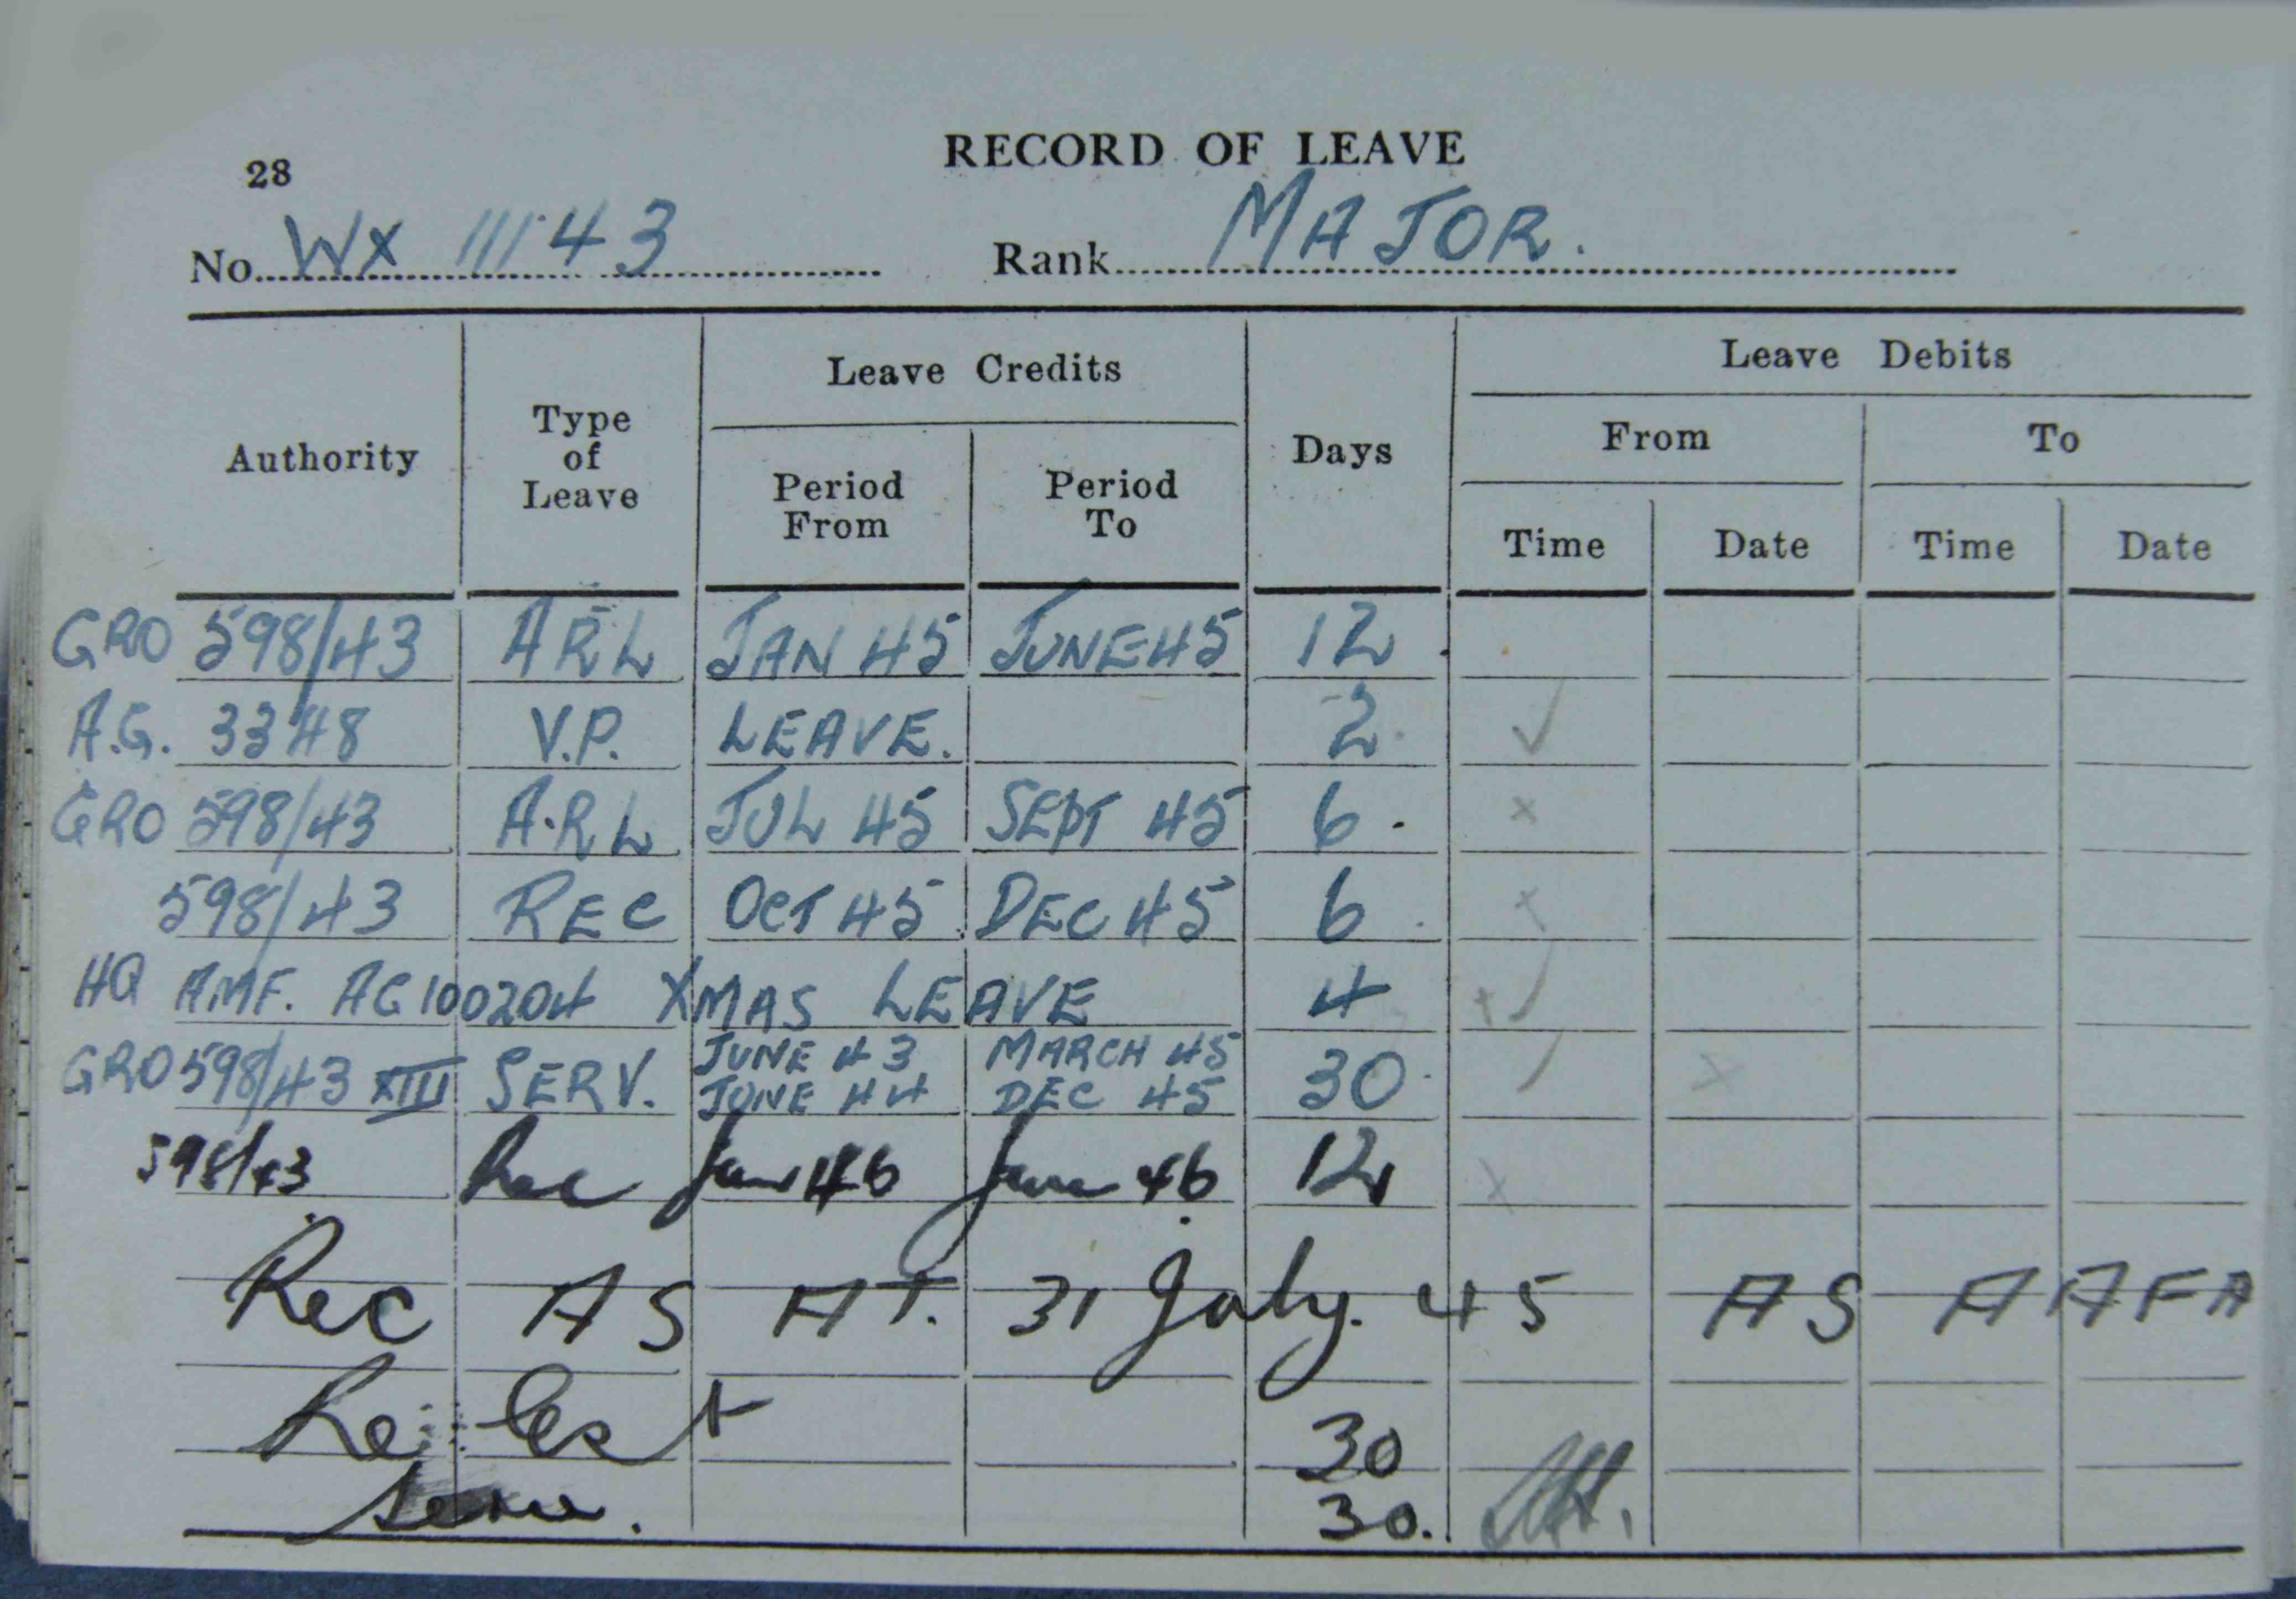 28
RECORD OF LEAVE
No. WX 11143 Rank MAJOR.
Authority Type of Leave Leave Credits Days Leave Debits
Period From Period To From To
Time Date Time Date
GRO 598/43 ARL JAN 45 JUNE 45 12
A.G. 3348 V.P. LEAVE. 2
GRO 598/43 A.R.L JUL 45 SEPT 45 6
598/43 REC OCT 45 DEC 45 6
HQ AMF. AG 100204 XMAS LEAVE 4
GRO 598/43 XIII SERV. JUNE 43 MARCH 45 30
JUNE 44 DEC 45
598/43 Rec Jan 46 June 46 12
Rec AS AT. 31 July. 45 AS A AFA
30
30.